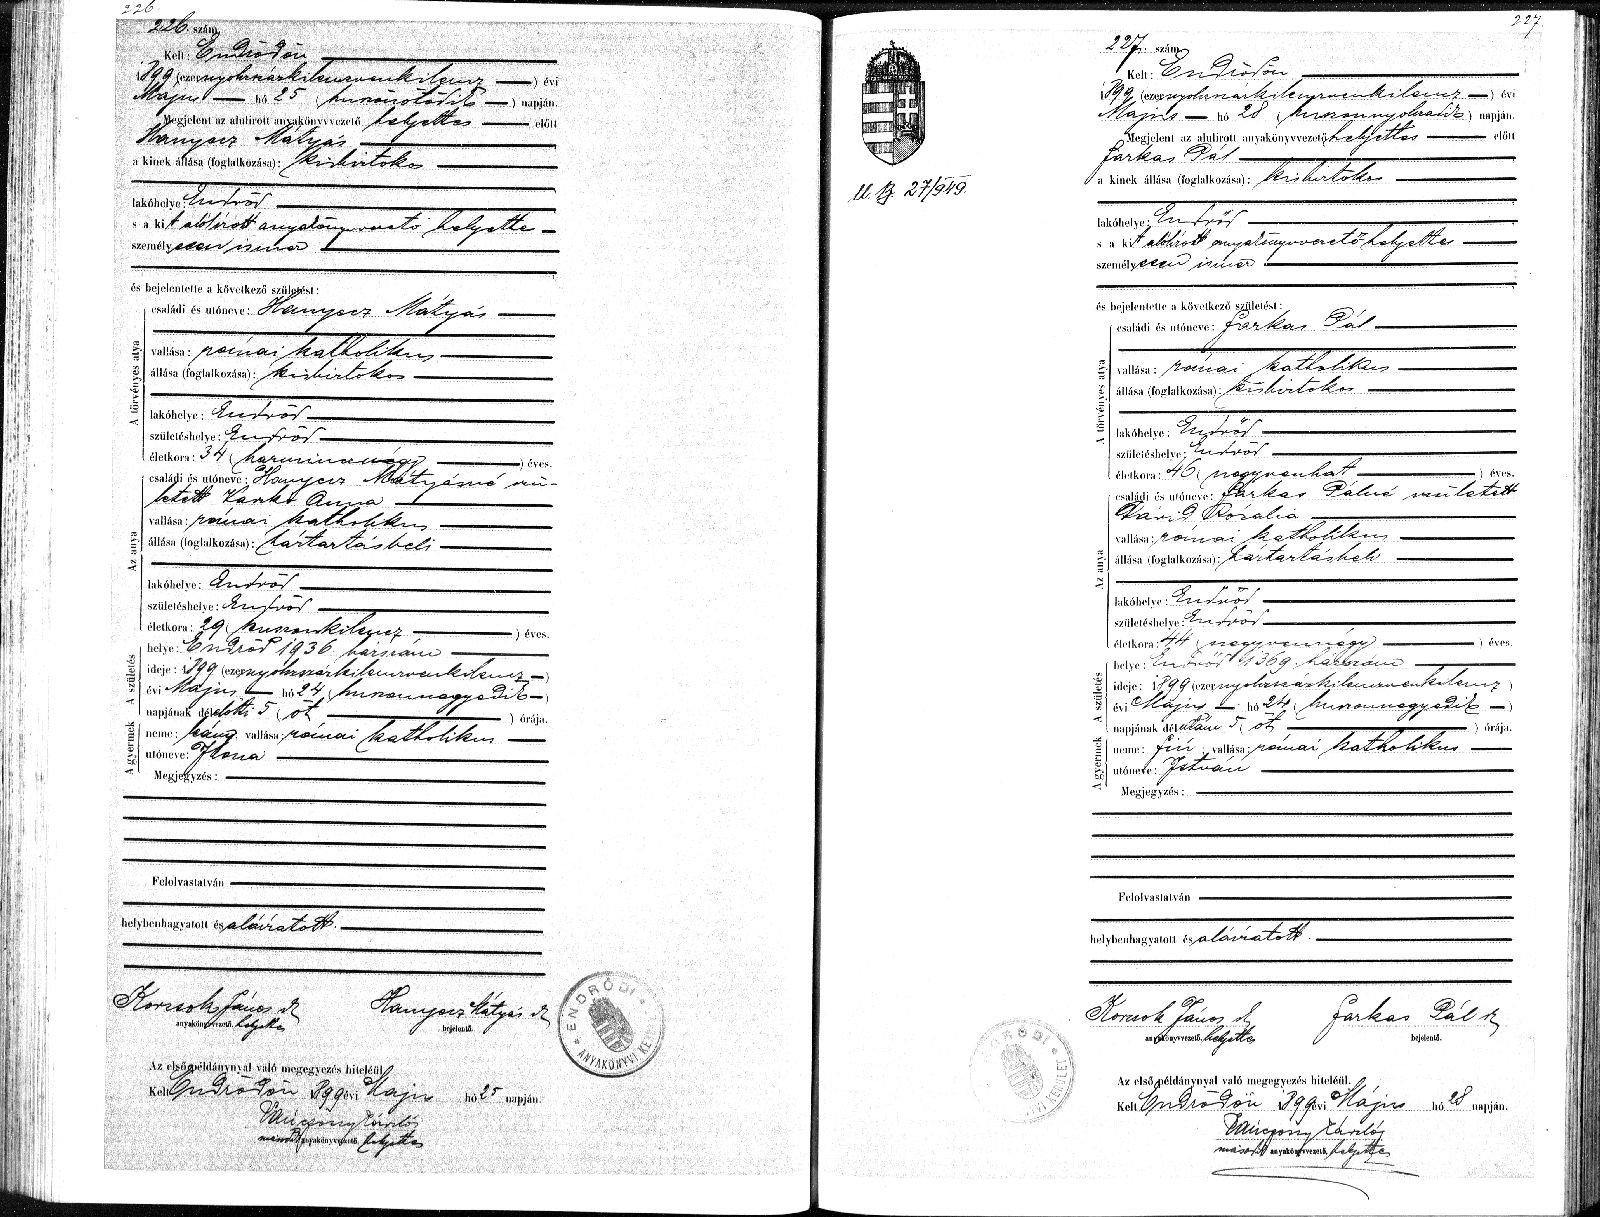 226.
226. szám.
Kelt: Endrődön
1899 (ezernyolczszázkilenczvenkilencz) évi
Május hó 25 (huszonötödik) napján.
Megjelent az alulirott anyakönyvvezető helyettes előtt
Hanyecz Mátyás
a kinek állása (foglalkozása): kisbirtokos
lakóhelye: Endrőd
s a kit alólírott anyakönyvvezető helyettes
személyesen ismer
és bejelentette a következő születést:
A törvényes atya
családi és utóneve: Hanyecz Mátyás
vallása: római katholikus
állása (foglalkozása): kisbirtokos
lakóhelye: Endrőd
születéshelye: Endrőd
életkora: 34 (harmincznégy) éves.
Az anya
családi és utóneve: Hanyecz Mátyásné szü-
letett Anna
vallása: római katholikus
állása (foglalkozása): háztartásbeli
lakóhelye: Endrőd
születéshelye: Endrőd
életkora: 29 (huszonkilencz) éves.
A születés
helye: Endrőd 1936 házszám
ideje: 1899 (ezernyolczszázkilenczvenkilencz)
évi Május hó 24 (huszonnegyedik)
napjának délelőtti 5 (öt) órája.
A gyermek
neme: leány; vallása: római katholikus
utóneve: Ilona
Megjegyzés:
Felolvastatván
helybenhagyatott és aláíratott.
Korcsok János sk Hanyecz Mátyás sk
anyakönyvvezető. helyettes bejelentő.
ENDRŐDI ANYAKÖNYVI KERÜLET
Az első példánynyal való megegyezés hiteléül.
Kelt Endrődön 1899 évi Május hó 25 napján.
másod anyakönyvvezető. helyettes
227.
227. szám.
Kelt: Endrődön
1899 (ezernyolczszázkilenczvenkilencz) évi
Május hó 28 (huszonnyolczadik) napján.
Megjelent az alulirott anyakönyvvezető helyettes előtt
Farkas Pál
a kinek állása (foglalkozása): kisbirtokos
27/949.
lakóhelye: Endrőd
s a kit alólírott anyakönyvvezető helyettes
személyesen ismer
és bejelentette a következő születést:
A törvényes atya
családi és utóneve: Farkas Pál
vallása: római katholikus
állása (foglalkozása): kisbirtokos
lakóhelye: Endrőd
születéshelye: Endrőd
életkora: 46 (negyvenhat) éves.
Az anya
családi és utóneve: Farkas Pálné született
Dávid Rozália
vallása: római katholikus
állása (foglalkozása): háztartásbeli
lakóhelye: Endrőd
születéshelye: Endrőd
életkora: 44 (negyvennégy) éves.
A születés
helye: Endrőd 1369 házszám
ideje: 1899 (ezernyolczszázkilenczvenkilencz)
évi Május hó 24 (huszonnegyedik)
napjának délután 5 (öt) órája.
A gyermek
neme: fiú; vallása: római katholikus
utóneve: István
Megjegyzés:
Felolvastatván
helybenhagyatott és aláíratott.
Korcsok János sk Farkas Pál sk
anyakönyvvezető. helyettes bejelentő.
Az első példánynyal való megegyezés hiteléül.
Kelt Endrődön 1899 évi Május hó 28 napján.
másod anyakönyvvezető. helyettes